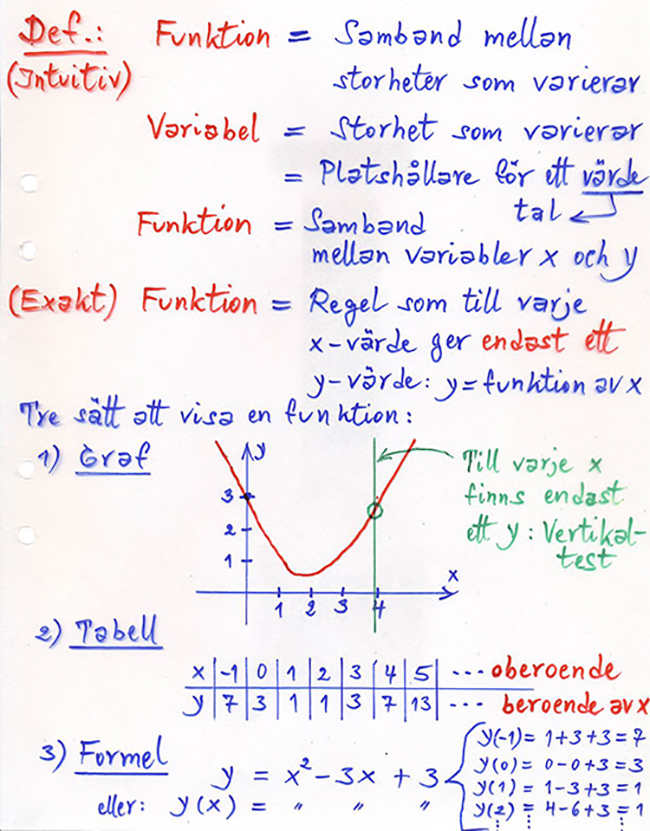 Def.: Funktion = Samband mellan
(Intuitiv) storheter som varierar
Variabel = Storhet som varierar
= Platshållare för ett värde
tal
Funktion = Samband
mellan variabler x och y
(Exakt) Funktion = Regel som till varje
x-värde ger endast ett
y-värde: y = funktion av x
Tre sätt att visa en funktion:
1) Graf
y
3
2
1
x
1 2 3 4
Till varje x
finns endast
ett y: Vertikal-
test
2) Tabell
x | -1 | 0 | 1 | 2 | 3 | 4 | 5 | ... oberoende
y | 7 | 3 | 1 | 1 | 3 | 7 | 13 | ... beroende av x
3) Formel
y = x² - 3x + 3
eller: y(x) = " " "
y(-1) = 1+3+3 = 7
y(0) = 0-0+3 = 3
y(1) = 1-3+3 = 1
y(2) = 4-6+3 = 1